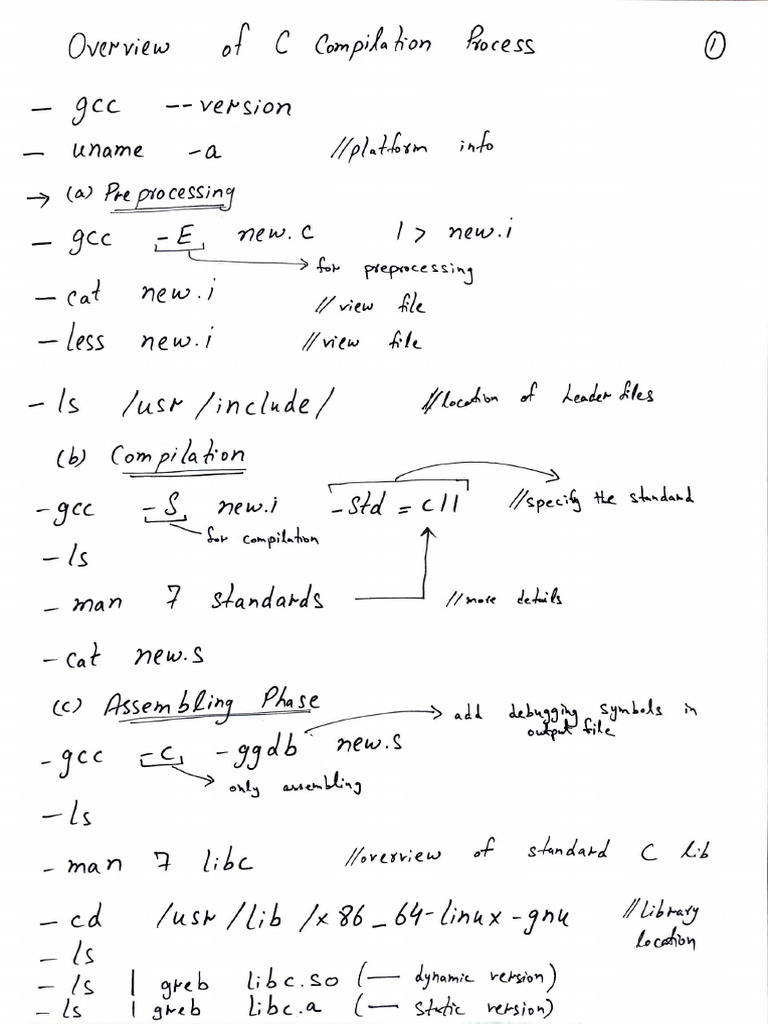 Overview of C Compilation Process ①
- gcc --version
- uname -a //platform info
→ (a) Preprocessing
- gcc -E new.c 1> new.i
for preprocessing
- cat new.i // view file
- less new.i // view file
- ls /usr/include/ //location of header files
(b) Compilation
- gcc -S new.i -std=c11 //specify the standard
for compilation
- ls
- man 7 standards //more details
- cat new.s
(c) Assembling Phase
add debugging symbols in
output file
- gcc -c -ggdb new.s
only assembling
- ls
- man 7 libc //overview of standard C lib
- cd /usr/lib/x86_64-linux-gnu //library
location
- ls
- ls | greb libc.so (— dynamic version)
- ls | greb libc.a (— static version)